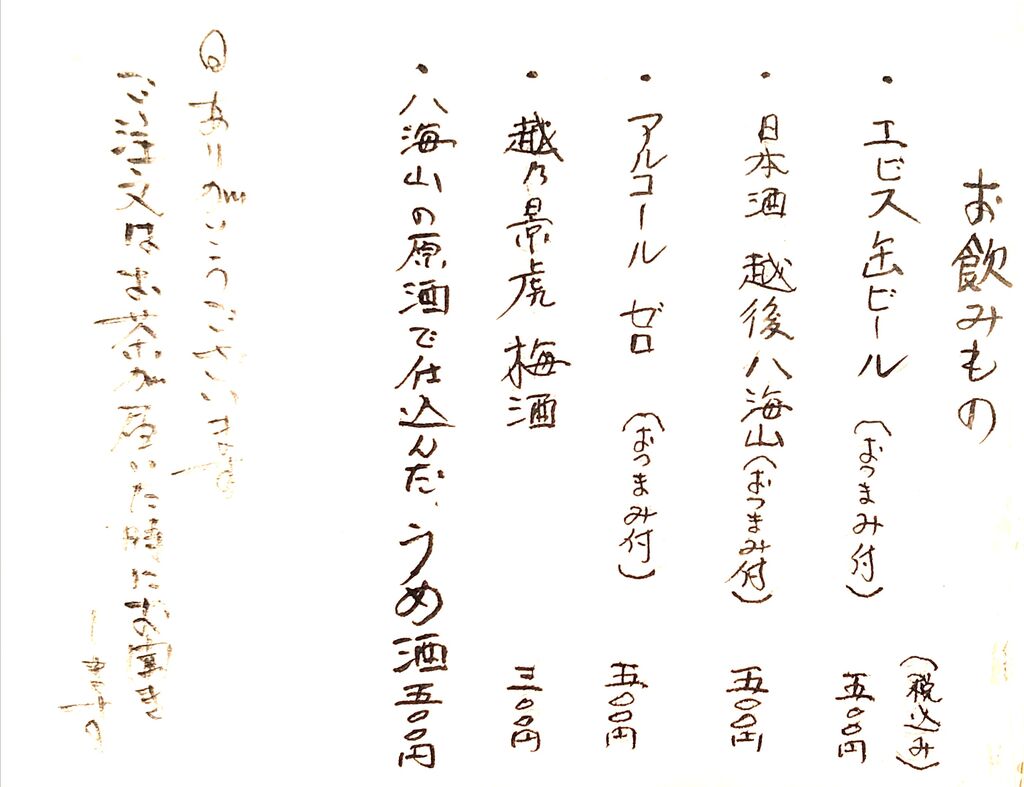 お飲みもの
(税込み)
・エビス缶ビール(おつまみ付) 五〇〇円
・日本酒 越後八海山(おつまみ付) 五〇〇円
・アルコール ゼロ (おつまみ付) 五〇〇円
・越乃景虎 梅酒 三〇〇円
・八海山の原酒で仕込んだ、うめ酒 五〇〇円
◎ありがとうございます
ご注文はお茶が届いた時にお聞き
します。